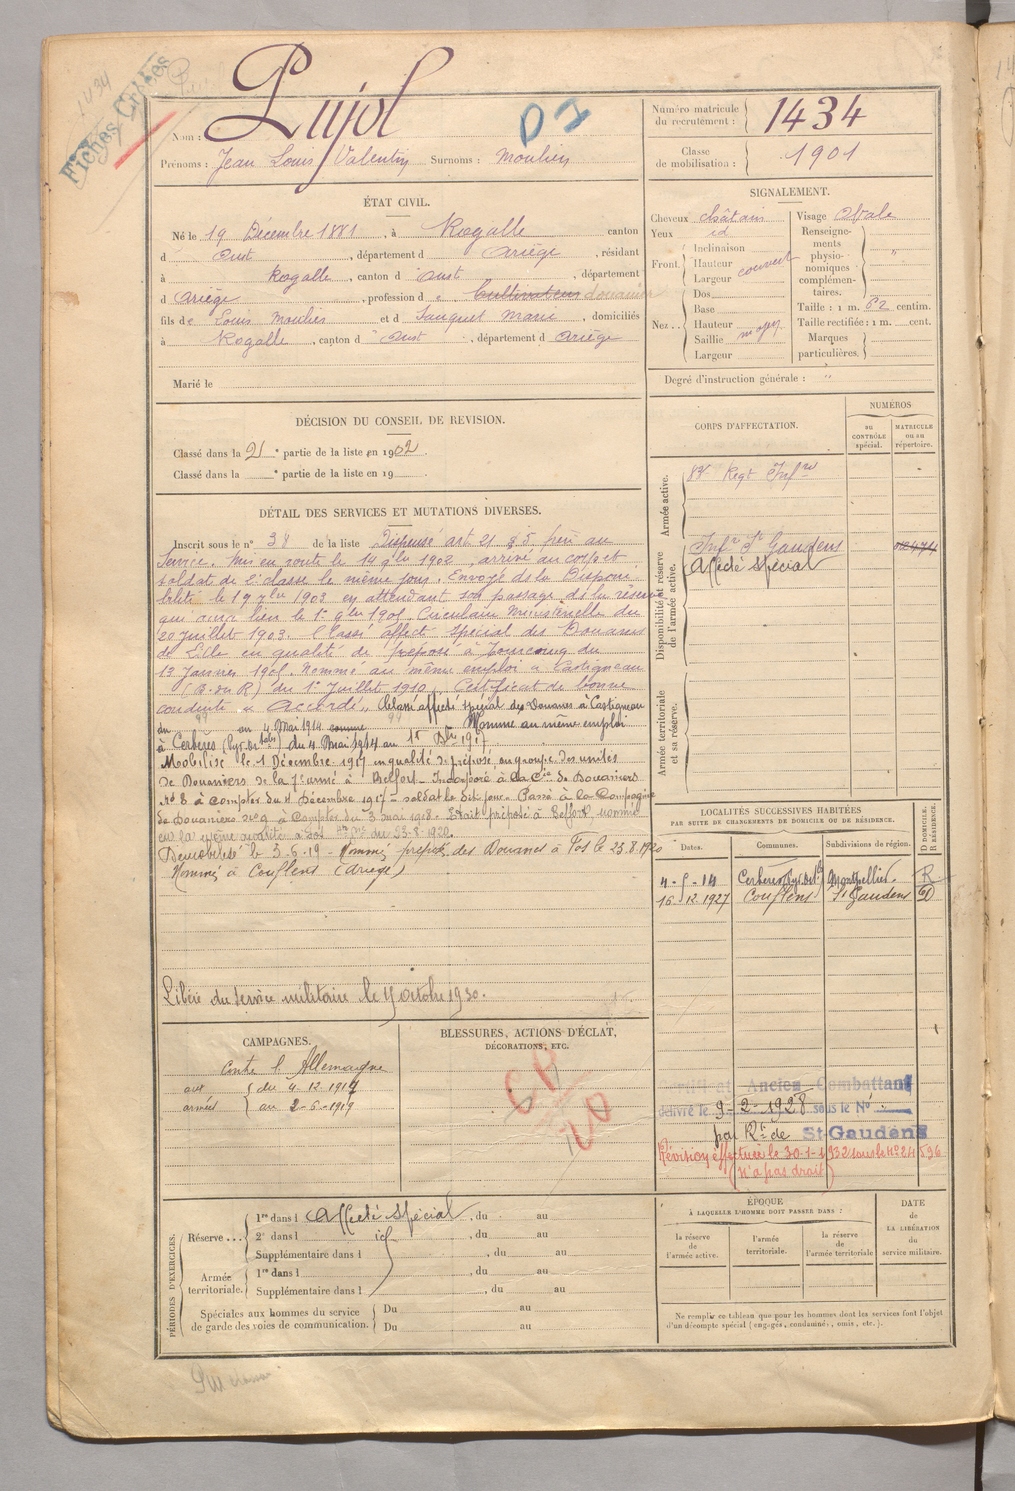 1434
Fiches Créées
Pujol
D I
Nom :
Prénoms : Jean Louis Valentin Surnoms : Moulies
Numéro matricule du recrutement : 1434
Classe de mobilisation : 1901
ÉTAT CIVIL.
Né le 19 Décembre 1881, à Rogalle canton
d Oust, département d Ariège, résidant
à Rogalle, canton d Oust, département
d Ariège, profession d Cultivateur douanier
fils de Louis Moulies et d Fauquet Marie, domiciliés
à Rogalle, canton d Oust, département d Ariège
Marié le
SIGNALEMENT.
Cheveux châtain
Yeux id
Front. Inclinaison
Hauteur couvert
Largeur
Nez. Dos
Base
Hauteur
Saillie moyen
Largeur
Visage Ovale
Renseignements physionomiques complémentaires. "
Taille : 1 m. 62 centim.
Taille rectifiée : 1 m. cent.
Marques particulières.
Degré d'instruction générale : "
DÉCISION DU CONSEIL DE REVISION.
Classé dans la 2 e partie de la liste en 1902.
Classé dans la e partie de la liste en 19
CORPS D'AFFECTATION.
NUMÉROS
AU CONTRÔLE spécial.
MATRICULE ou au répertoire.
Armée active.
Regt Infie
Disponibilité et réserve de l'armée active.
Infie St Gaudens
Affecté Spécial
Armée territoriale et sa réserve.
DÉTAIL DES SERVICES ET MUTATIONS DIVERSES.
Inscrit sous le n° 38 de la liste Dispensé art 21 § 5 frère au
Service. Mis en route le 14 9bre 1902, arrivé au corps et
soldat de 2e classe le même jour. Envoyé ds la Disponi
bilité le 19 7bre 1903 en attendant son passage ds la réserve
qui aura lieu le 1er 9bre 1905. Circulaire Ministérielle du
20 juillet 1903. Classé affecté spécial des Douanes
de Lille en qualité de préposé à du
13 Janvier 1905. Nommé au même emploi à Castigneau
(B. du R) du 1er Juillet 1910. Certificat de bonne
conduite " Accordé ". Classé affecté spécial des Douanes à Castigneau
du au 4 Mai 1914 comme Nommé au même emploi
à Cerbères (Pyr. Or tales) du 4 Mai 1914 au 1er Dbre 1917
Mobilisé le 1 Décembre 1917 en qualité de préposé au groupe des unités
de Douaniers de la 7e armée à Belfort - Incorporé à la Cie de Douaniers
N° 8 à compter du 4 Décembre 1917 - soldat le dit jour - Passé à la Compagnie
de Douaniers n° 9 à Compter du 3 mai 1918 - Était préposé à Belfort, nommé
en la même qualité à Fos Hte Gne du 23-8-1920.
Démobilisé le 3-6-19 - Nommé préposé des Douanes à Fos le 23.8.1920
Nommé à Couflens (Ariège)
Libéré du service militaire le octobre 1930.
LOCALITÉS SUCCESSIVES HABITÉES
PAR SUITE DE CHANGEMENTS DE DOMICILE OU DE RÉSIDENCE.
Dates. Communes. Subdivisions de région. D DOMICILE. R RÉSIDENCE.
4-5-14 Cerbères (Pyr. Or les) Montpellier. R
16.12.1927 Couflens St Gaudens D
CAMPAGNES.
Contre l'Allemagne
aux armées { du 4.12.1917
au 2-6-1919
BLESSURES, ACTIONS D'ÉCLAT,
DÉCORATIONS, ETC.
Certificat Ancien Combattant
délivré le 9-2-1928 sous le N°
par Rt de St-Gaudens
Révision effectuée le 30-1-1932 sous le N° 24596
(N'a pas droit)
PÉRIODES D'EXERCICES.
Réserve... 1re dans l Affecté Spécial, du au
2e dans l id, du au
Supplémentaire dans l, du au
Armée territoriale. 1re dans l, du au
Supplémentaire dans l, du au
Spéciales aux hommes du service de garde des voies de communication. Du au
Du au
ÉPOQUE
À LAQUELLE L'HOMME DOIT PASSER DANS :
la réserve de l'armée active.
l'armée territoriale.
la réserve de l'armée territoriale
DATE de LA LIBÉRATION du service militaire.
Ne remplir ce tableau que pour les hommes dont les services font l'objet
d'un décompte spécial (engagés, condamnés, omis, etc.).